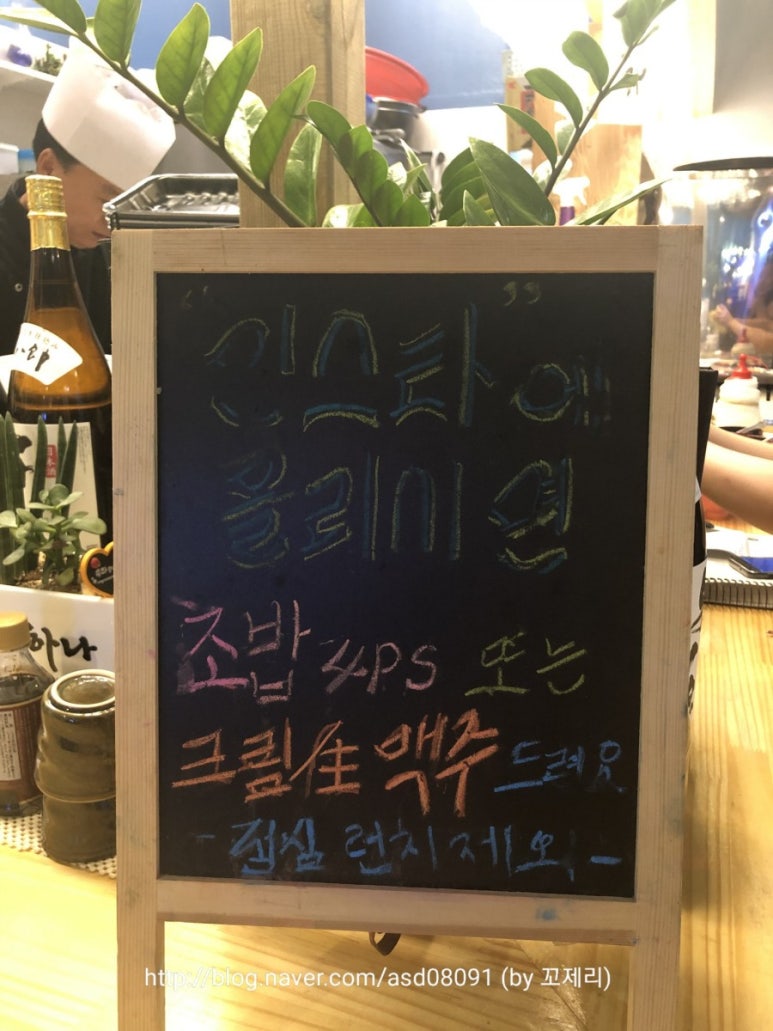 "인스타"에
올리시면
초밥 4PS 또는
크림生 맥주 드려요
- 점심 런치 제외 -
하나
http://blog.naver.com/asd08091 (by 꼬제리)